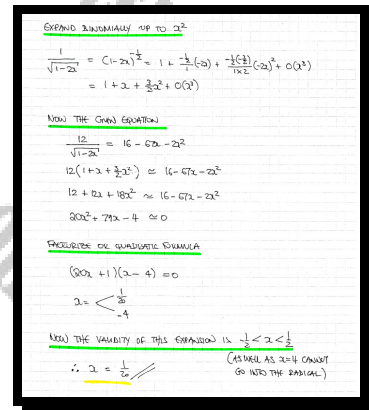 EXPAND BINOMIALLY UP TO x²
1/√(1-2x) = (1-2x)^(-1/2) = 1 + (-1/2)/1 (-2x) + (-1/2(-3/2))/(1×2) (-2x)² + O(x³)
= 1 + x + 3/2x² + O(x³)
NOW THE GIVEN EQUATION
12/√(1-2x) = 16 - 67x - 2x²
12(1 + x + 3/2x²) ≃ 16 - 67x - 2x²
12 + 12x + 18x² ≃ 16 - 67x - 2x²
20x² + 79x - 4 ≃ 0
FACTORIZE OR QUADRATIC FORMULA
(20x + 1)(x - 4) = 0
x = < 1/20
-4
NOW THE VALIDITY OF THIS EXPANSION IS -1/2 < x < 1/2
(AS WELL AS x=4 CANNOT
GO INTO THE RADICAL)
∴ x = 1/20